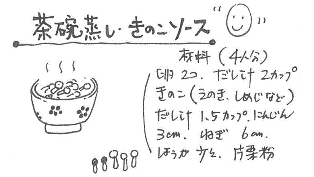 茶碗蒸し・きのこソース
材料（4人分）
卵 2コ. だし汁 2カップ
きのこ（えのき. しめじなど）
だし汁 1.5カップ. にんじん
3cm. ねぎ 6cm.
しょうが 少々. 片栗粉